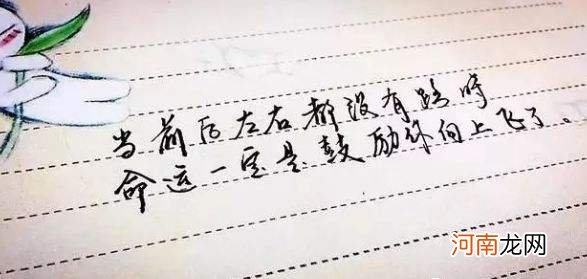 当前后左右都没有路时
命运一定是鼓励你向上飞了。
河南龙网